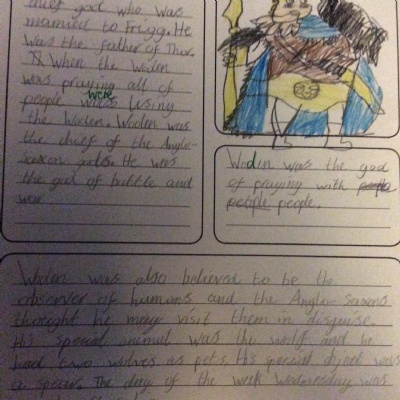 chief god who was
married to Frigg. He
was the father of Thor.
When the Woden
was praying all of
people were using
the Woden. Woden was
the chief of the Anglo-
Saxon gods. He was
the god of battle and
war.
Woden was the god
of praying with people
people, people.
Woden was also believed to be the
observer of humans and the Anglo-Saxons
thought he may visit them in disguise.
His special animal was the wolf and he
had two wolves as pets. His special object was
a spear. The day of the week Wednesday was